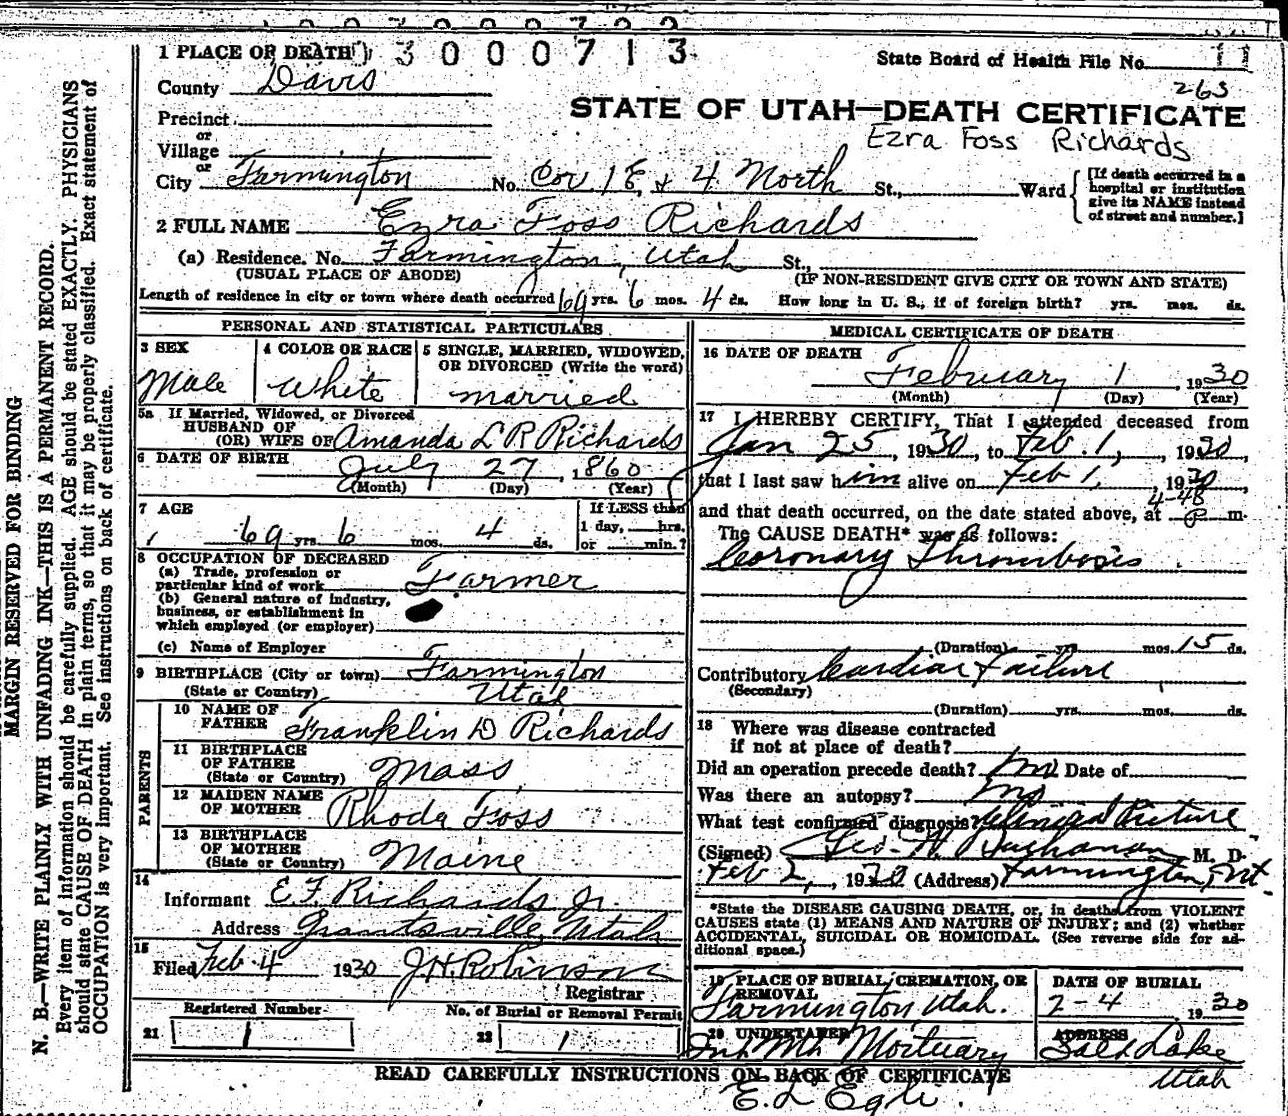 1 PLACE OF DEATH 3000713
State Board of Health File No. 11
County Davis
263
STATE OF UTAH—DEATH CERTIFICATE
Precinct
Ezra Foss Richards
or
Village
or
City Farmington No. Cor 1 E, & 4 North St., Ward
[If death occurred in a hospital or institution give its NAME instead of street and number.]
2 FULL NAME Ezra Foss Richards
(a) Residence. No. Farmington, Utah St.,
(USUAL PLACE OF ABODE) (IF NON-RESIDENT GIVE CITY OR TOWN AND STATE)
Length of residence in city or town where death occurred 69 yrs. 6 mos. 4 ds. How long in U. S., if of foreign birth? yrs. mos. ds.
PERSONAL AND STATISTICAL PARTICULARS
3 SEX
Male
4 COLOR OR RACE
White
5 SINGLE, MARRIED, WIDOWED,
OR DIVORCED (Write the word)
married
5a If Married, Widowed, or Divorced
HUSBAND OF
(OR) WIFE OF Amanda L R Richards
6 DATE OF BIRTH July 27, 1860
(Month) (Day) (Year)
7 AGE
69 yrs. 6 mos. 4 ds.
If LESS than
1 day, hrs.
or min.?
8 OCCUPATION OF DECEASED
(a) Trade, profession or
particular kind of work Farmer
(b) General nature of industry,
business, or establishment in
which employed (or employer)
(c) Name of Employer
9 BIRTHPLACE (City or town) Farmington
(State or Country) Utah
PARENTS
10 NAME OF
FATHER Franklin D Richards
11 BIRTHPLACE
OF FATHER
(State or Country) Mass
12 MAIDEN NAME
OF MOTHER Rhoda Foss
13 BIRTHPLACE
OF MOTHER
(State or Country) Maine
14
Informant E F Richards Jr.
Address Grantsville, Utah
15
Filed Feb 4 1930 J H Robinson
Registrar
Registered Number
21 1
No. of Burial or Removal Permit
22 1
MEDICAL CERTIFICATE OF DEATH
16 DATE OF DEATH
February 1, 1930
(Month) (Day) (Year)
17 I HEREBY CERTIFY, That I attended deceased from
Jan 25, 1930, to Feb. 1, 1930,
that I last saw him alive on Feb 1, 1930,
4-48
and that death occurred, on the date stated above, at P m.
The CAUSE DEATH* was as follows:
Coronary Thrombosis.
(Duration) yrs. mos. 15 ds.
Contributory Cardiac Failure
(Secondary)
(Duration) yrs. mos. ds.
18 Where was disease contracted
if not at place of death?
Did an operation precede death? no Date of
Was there an autopsy? no
What test confirmed diagnosis? Clinical Picture
(Signed) Geo. W. Buchanan M. D.
Feb 2, 1930 (Address) Farmington, Ut.
*State the DISEASE CAUSING DEATH, or, in deaths from VIOLENT
CAUSES state (1) MEANS AND NATURE OF INJURY; and (2) whether
ACCIDENTAL, SUICIDAL OR HOMICIDAL. (See reverse side for ad-
ditional space.)
19 PLACE OF BURIAL, CREMATION, OR
REMOVAL
Farmington, Utah.
DATE OF BURIAL
2-4, 1930
20 UNDERTAKER
Mortuary
ADDRESS
Salt Lake
Utah
READ CAREFULLY INSTRUCTIONS ON BACK OF CERTIFICATE
E. L
MARGIN RESERVED FOR BINDING
N. B.—WRITE PLAINLY WITH UNFADING INK—THIS IS A PERMANENT RECORD.
Every item of information should be carefully supplied. AGE should be stated EXACTLY. PHYSICIANS
should state CAUSE OF DEATH in plain terms, so that it may be properly classified. Exact statement of
OCCUPATION is very important. See instructions on back of certificate.